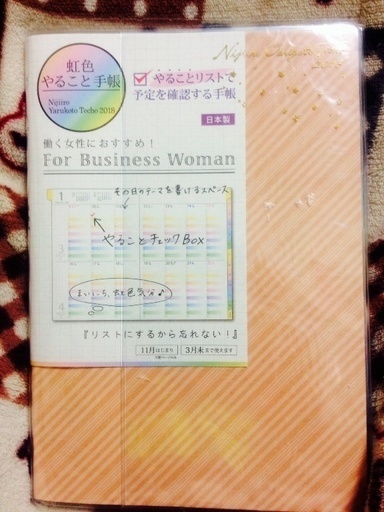 虹色
やること手帳
Nijiiro
Yarukoto Techo 2018
やることリストで
予定を確認する手帳
日本製
働く女性におすすめ!
For Business Woman
1
その日のテーマを書けるスペース
やることチェックBox
まいにち、虹色気分♪
『リストにするから忘れない!』
11月はじまり
3月末まで使えます